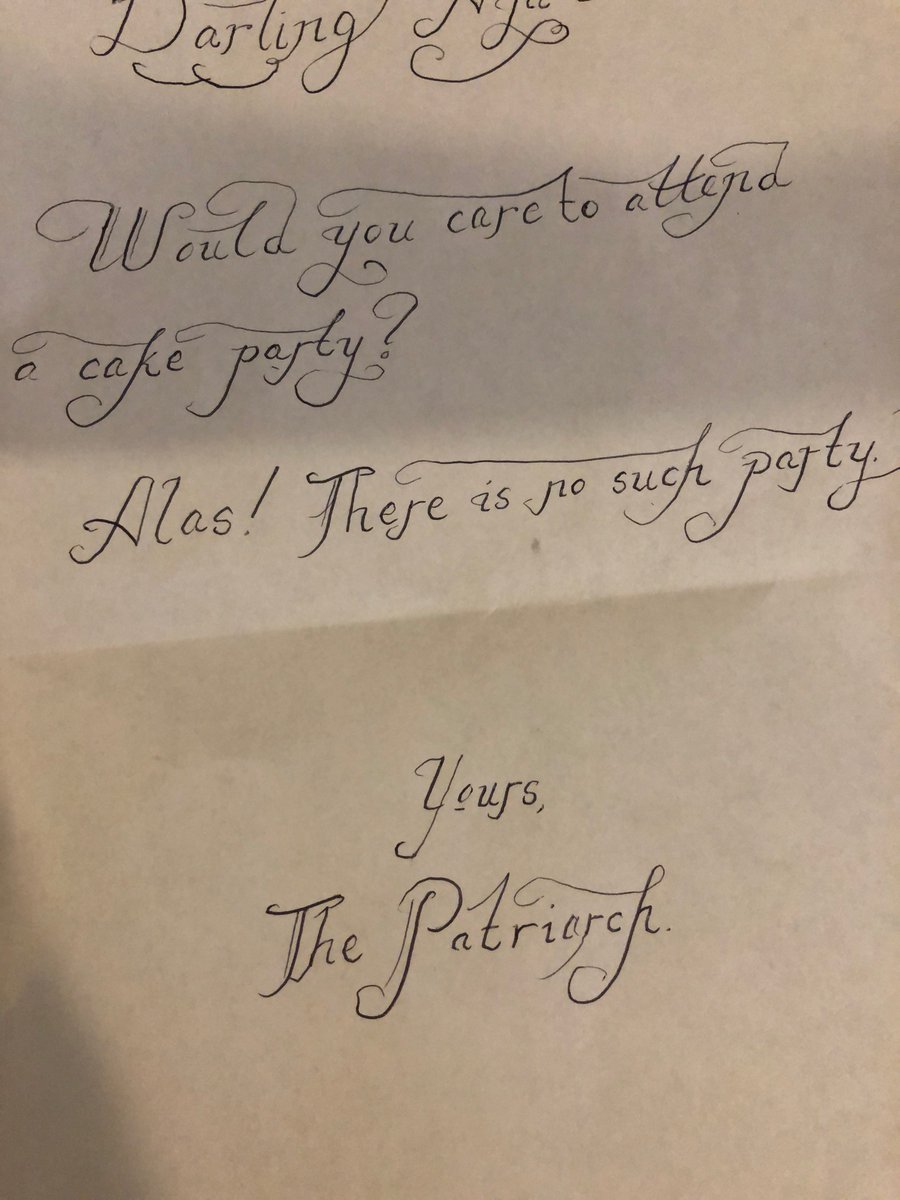 Darling
Would you care to attend
a cake party?
Alas! There is no such party.
Yours,
The Patriarch.